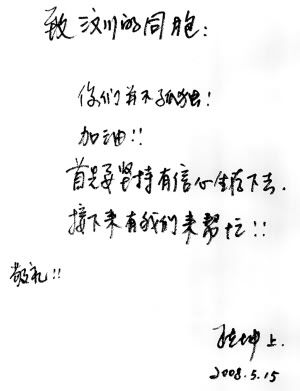 致汶川的同胞：
你们并不孤独！
加油！！
首先要坚持有信心生存下去．
接下来有我们来帮忙！！
敬礼！！
坤上．
2008.5.15